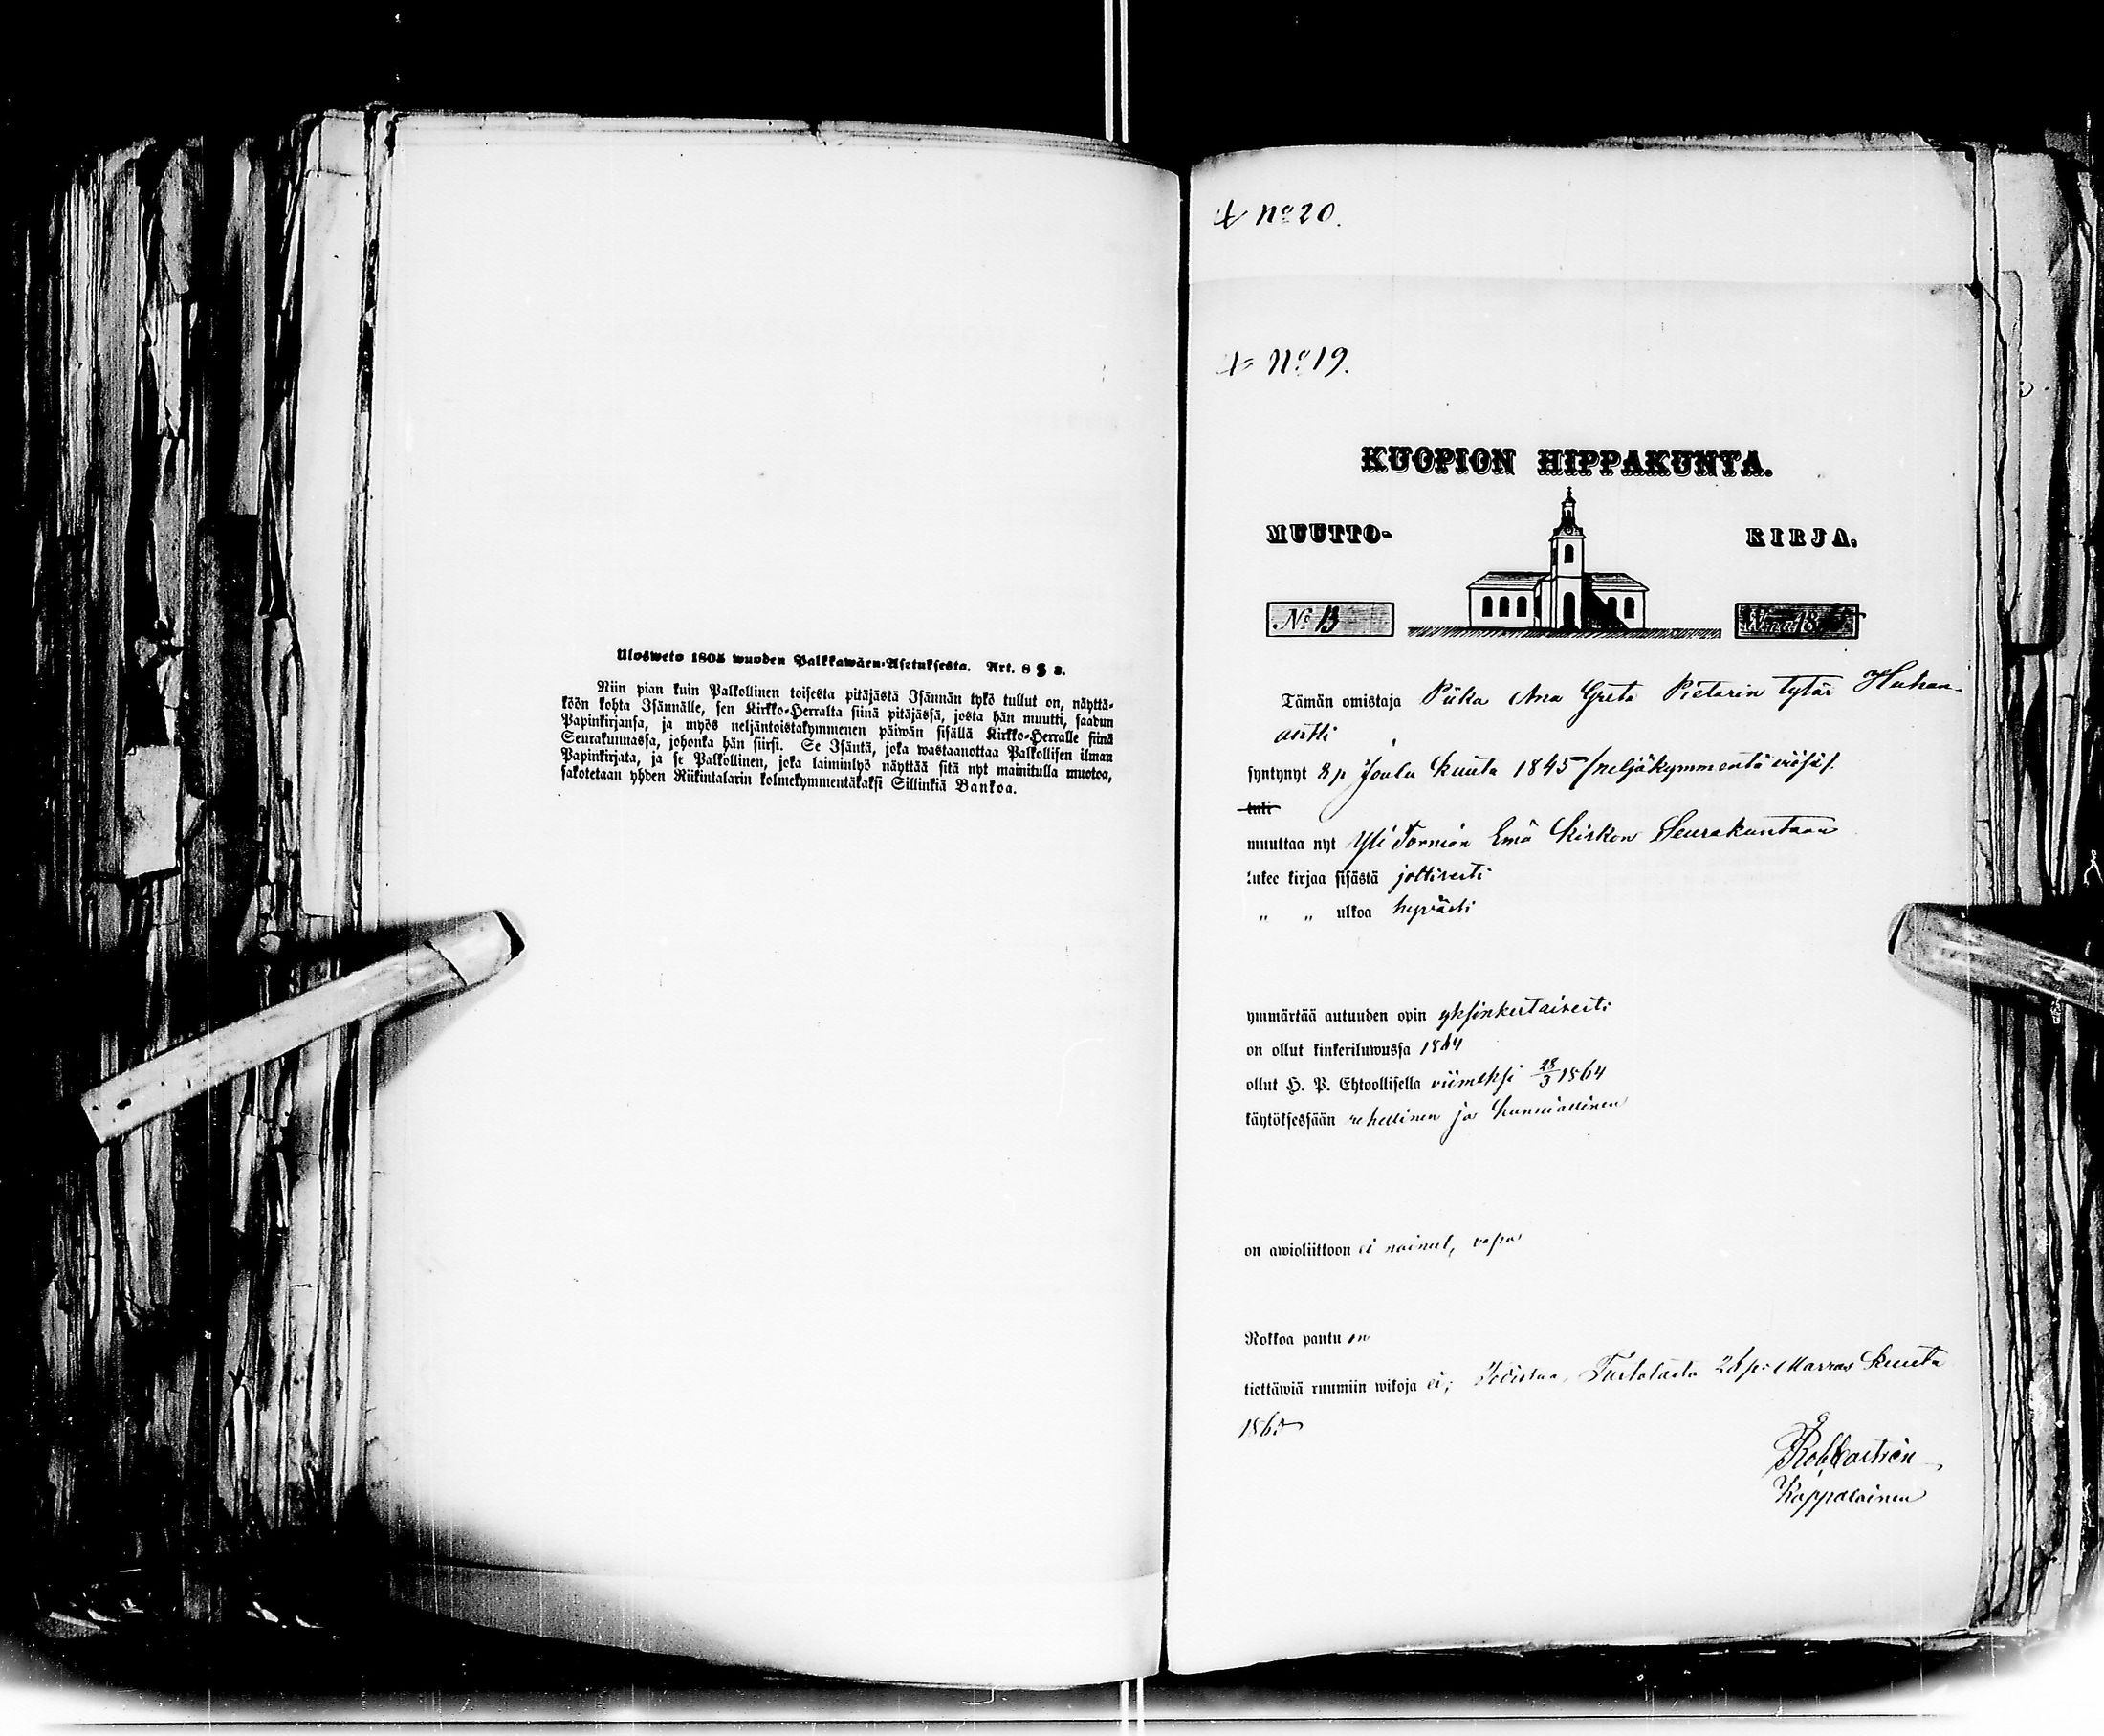 Ulosweto 1805 wuoden Palkkawäen-Asetuksesta. Art. 8 § 3.
Niin pian kuin Palkollinen toisesta pitäjästä Isännän tykö tullut on, näyttä-
köön kohta Isännälle, sen Kirkko-Herralta siinä pitäjässä, josta hän muutti, saadun
Papinkirjansa, ja myös neljäntoistakymmenen päiwän sisällä Kirkko-Herralle siinä
Seurakunnassa, johonka hän siirsi. Se Isäntä, joka wastaanottaa Palkollisen ilman
Papinkirjata, ja se Palkollinen, joka laiminlyö näyttää sitä nyt mainitulla muotoa,
sakotetaan yhden Riikintalarin kolmekymmentäkaksi Sillinkiä Bankoa.
No 20.
No 19.
KUOPION HIPPAKUNTA.
MUUTTO- KIRJA.
No 13
Tämän omistaja Piika Ana Greta Pietarin tytär
syntynyt 8 p Joulu Kuuta 1845 /neljäkymmentä wiisi/.
tuli
muuttaa nyt Yli Tornion Emä Kirkon Seurakuntaan
lukee kirjaa sisästä joltisesti
" " ulkoa hywästi
ymmärtää autuuden opin yksinkertaisesti
on ollut kinkeriluwussa 1864
ollut H. P. Ehtoollisella wiimeksi 28/3 1864
käytöksessään rehellinen ja kunniallinen
on awioliittoon ei nainut, vapa
Rokkoa pantu on
tiettäwiä ruumiin wikoja ei; Todistaa, Turtolasta Marras Kuuta
1865
Kappalainen